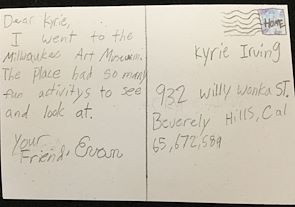 Dear Kyrie,
I went to the
Milwaukee Art Museum.
The place had so many
fun activitys to see
and look at.
Your
Friend, Evan
HOME
Kyrie Irving
932 Willy Wonka ST.
Beverely Hills, Cal
65,672,589